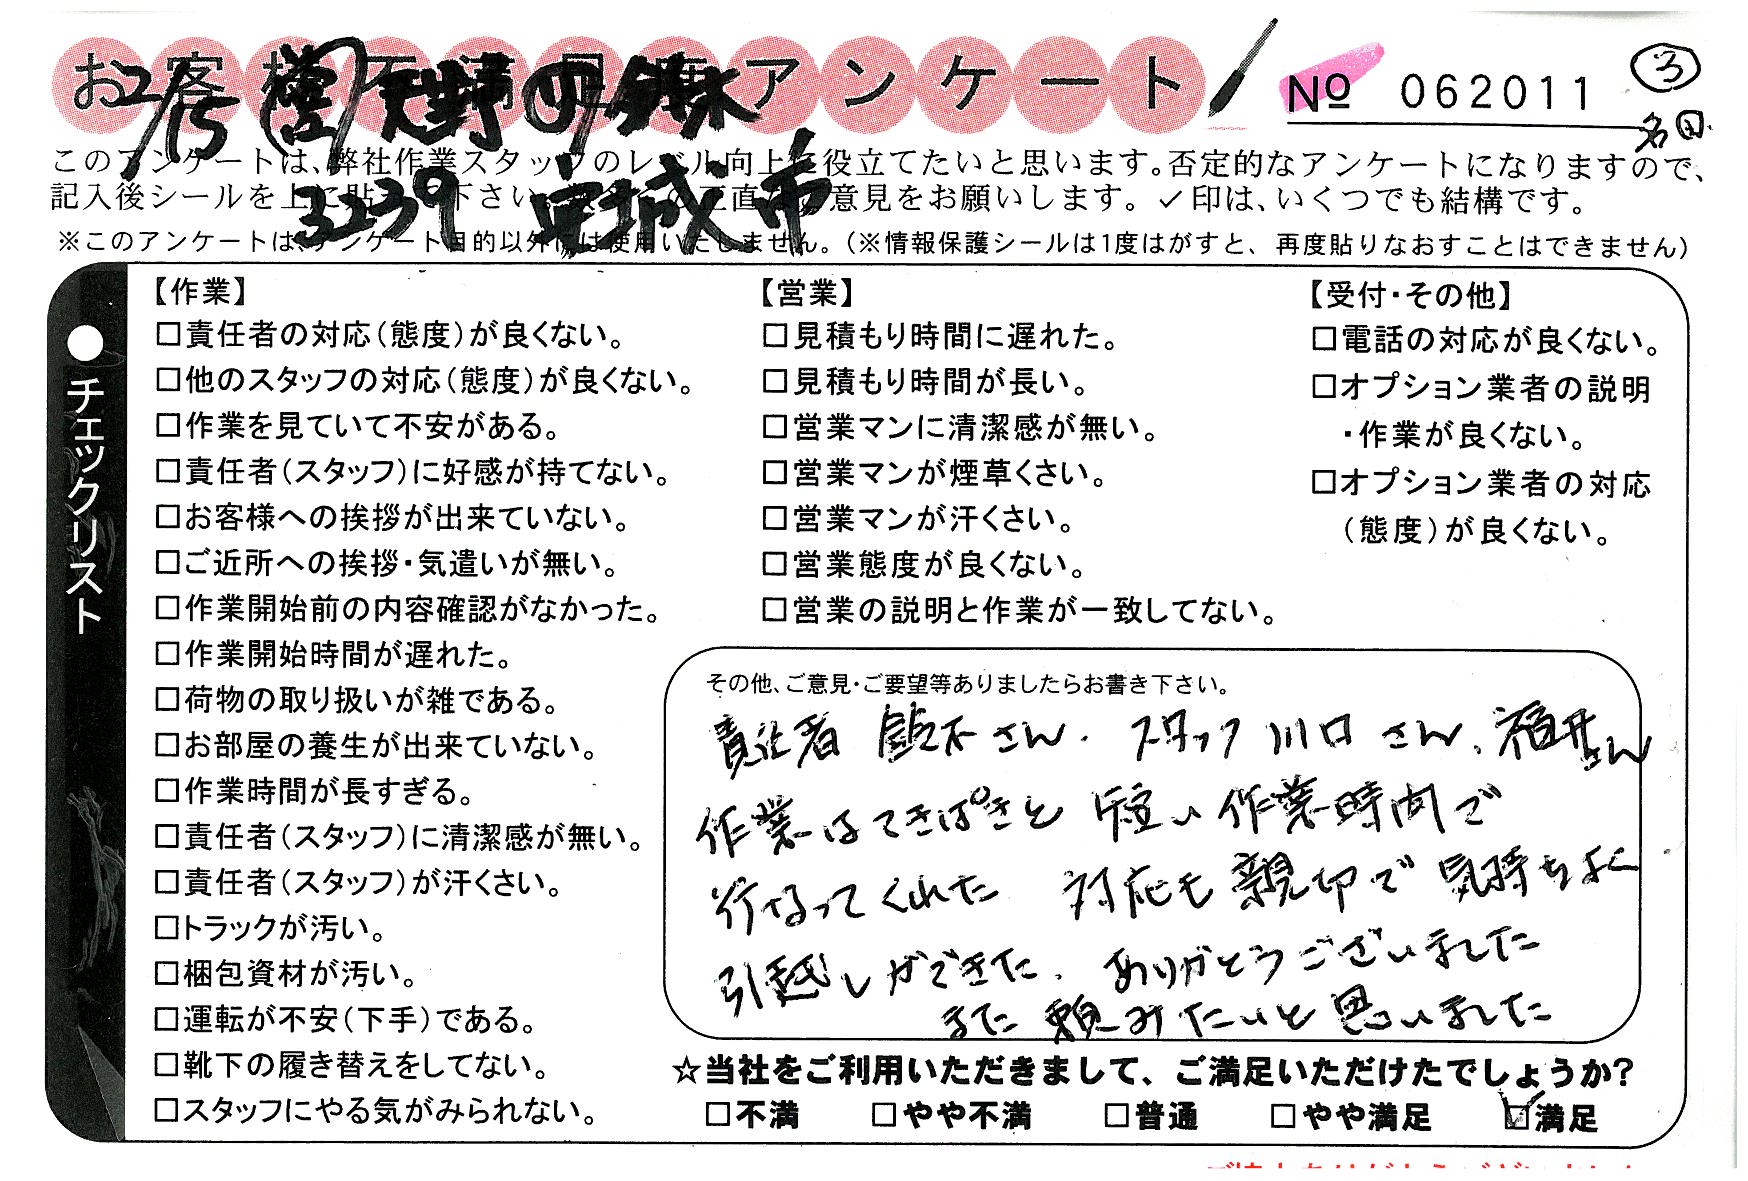 お客様不満足度アンケート
№ 062011
③
名田
2/15 (営)天野 の 鈴木
3239 安城市
このアンケートは、弊社作業スタッフのレベル向上に役立てたいと思います。否定的なアンケートになりますので、
記入後シールを上に貼って下さい。 正直なご意見をお願いします。✓印は、いくつでも結構です。
※このアンケートは、アンケート目的以外には使用いたしません。（※情報保護シールは1度はがすと、再度貼りなおすことはできません）
●チェックリスト
【作業】
□責任者の対応（態度）が良くない。
□他のスタッフの対応（態度）が良くない。
□作業を見ていて不安がある。
□責任者（スタッフ）に好感が持てない。
□お客様への挨拶が出来ていない。
□ご近所への挨拶・気遣いが無い。
□作業開始前の内容確認がなかった。
□作業開始時間が遅れた。
□荷物の取り扱いが雑である。
□お部屋の養生が出来ていない。
□作業時間が長すぎる。
□責任者（スタッフ）に清潔感が無い。
□責任者（スタッフ）が汗くさい。
□トラックが汚い。
□梱包資材が汚い。
□運転が不安（下手）である。
□靴下の履き替えをしてない。
□スタッフにやる気がみられない。
【営業】
□見積もり時間に遅れた。
□見積もり時間が長い。
□営業マンに清潔感が無い。
□営業マンが煙草くさい。
□営業マンが汗くさい。
□営業態度が良くない。
□営業の説明と作業が一致してない。
【受付・その他】
□電話の対応が良くない。
□オプション業者の説明
・作業が良くない。
□オプション業者の対応
（態度）が良くない。
その他、ご意見・ご要望等ありましたらお書き下さい。
責任者 鈴木さん. スタッフ 川口さん、福井さん
作業はてきぱきと 短い作業時間で
行なってくれた 対応も親切で気持ちよく
引越しができた. ありがとうございました
また頼みたいと思いました
☆当社をご利用いただきまして、ご満足いただけたでしょうか?
□不満 □やや不満 □普通 □やや満足 ☑満足